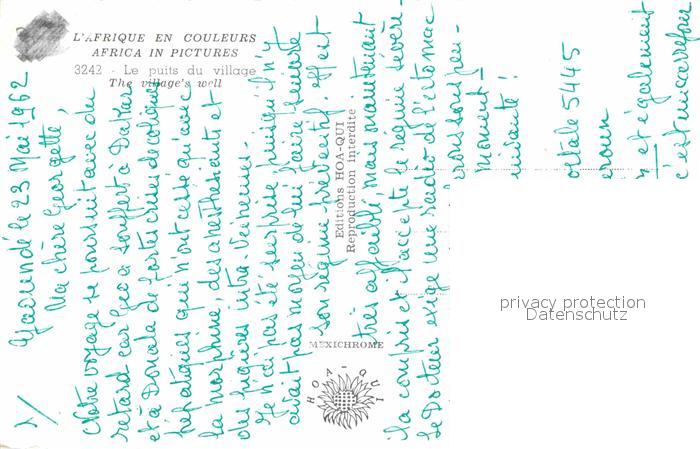 L'AFRIQUE EN COULEURS
AFRICA IN PICTURES
3242 - Le puits du village
The village's well
Editions HOA-QUI
Reproduction Interdite
MEXICHROME
HOA-QUI
1/
Yaoundé le 23 Mai 1962
Ma chère Georgette,
Notre voyage se poursuit avec du
retard car Geo a souffert à Dakar
et à Douala de fortes crises de coliques
hépatiques qui n'ont cessé qu'avec
la morphine, des anesthésiants et
des piqûres intra-veineuses.
Je n'ai pas été surprise puisqu'il n'y
avait pas moyen de lui faire suivre
son régime préventif. Il est
très affaibli, mais maintenant
il a compris et il accepte le régime sévère.
Le Docteur exige une radio de l'estomac
moment
ostale 5445
et également
c'est un carrefour
privacy protection
Datenschutz